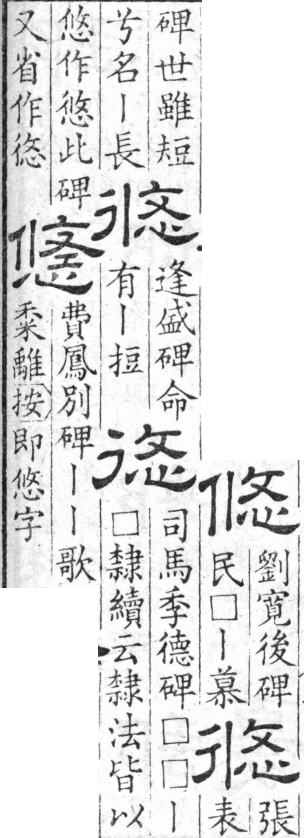 悠
劉寬後碑
民□丨慕
悠
張
表
碑世雖短
兮名丨長
悠
逢盛碑命
有丨
悠
司馬季德碑□□丨
□隸續云隸法皆以
悠作悠此碑
又省作悠
悠
費鳳別碑丨丨歌
黍離按即悠字